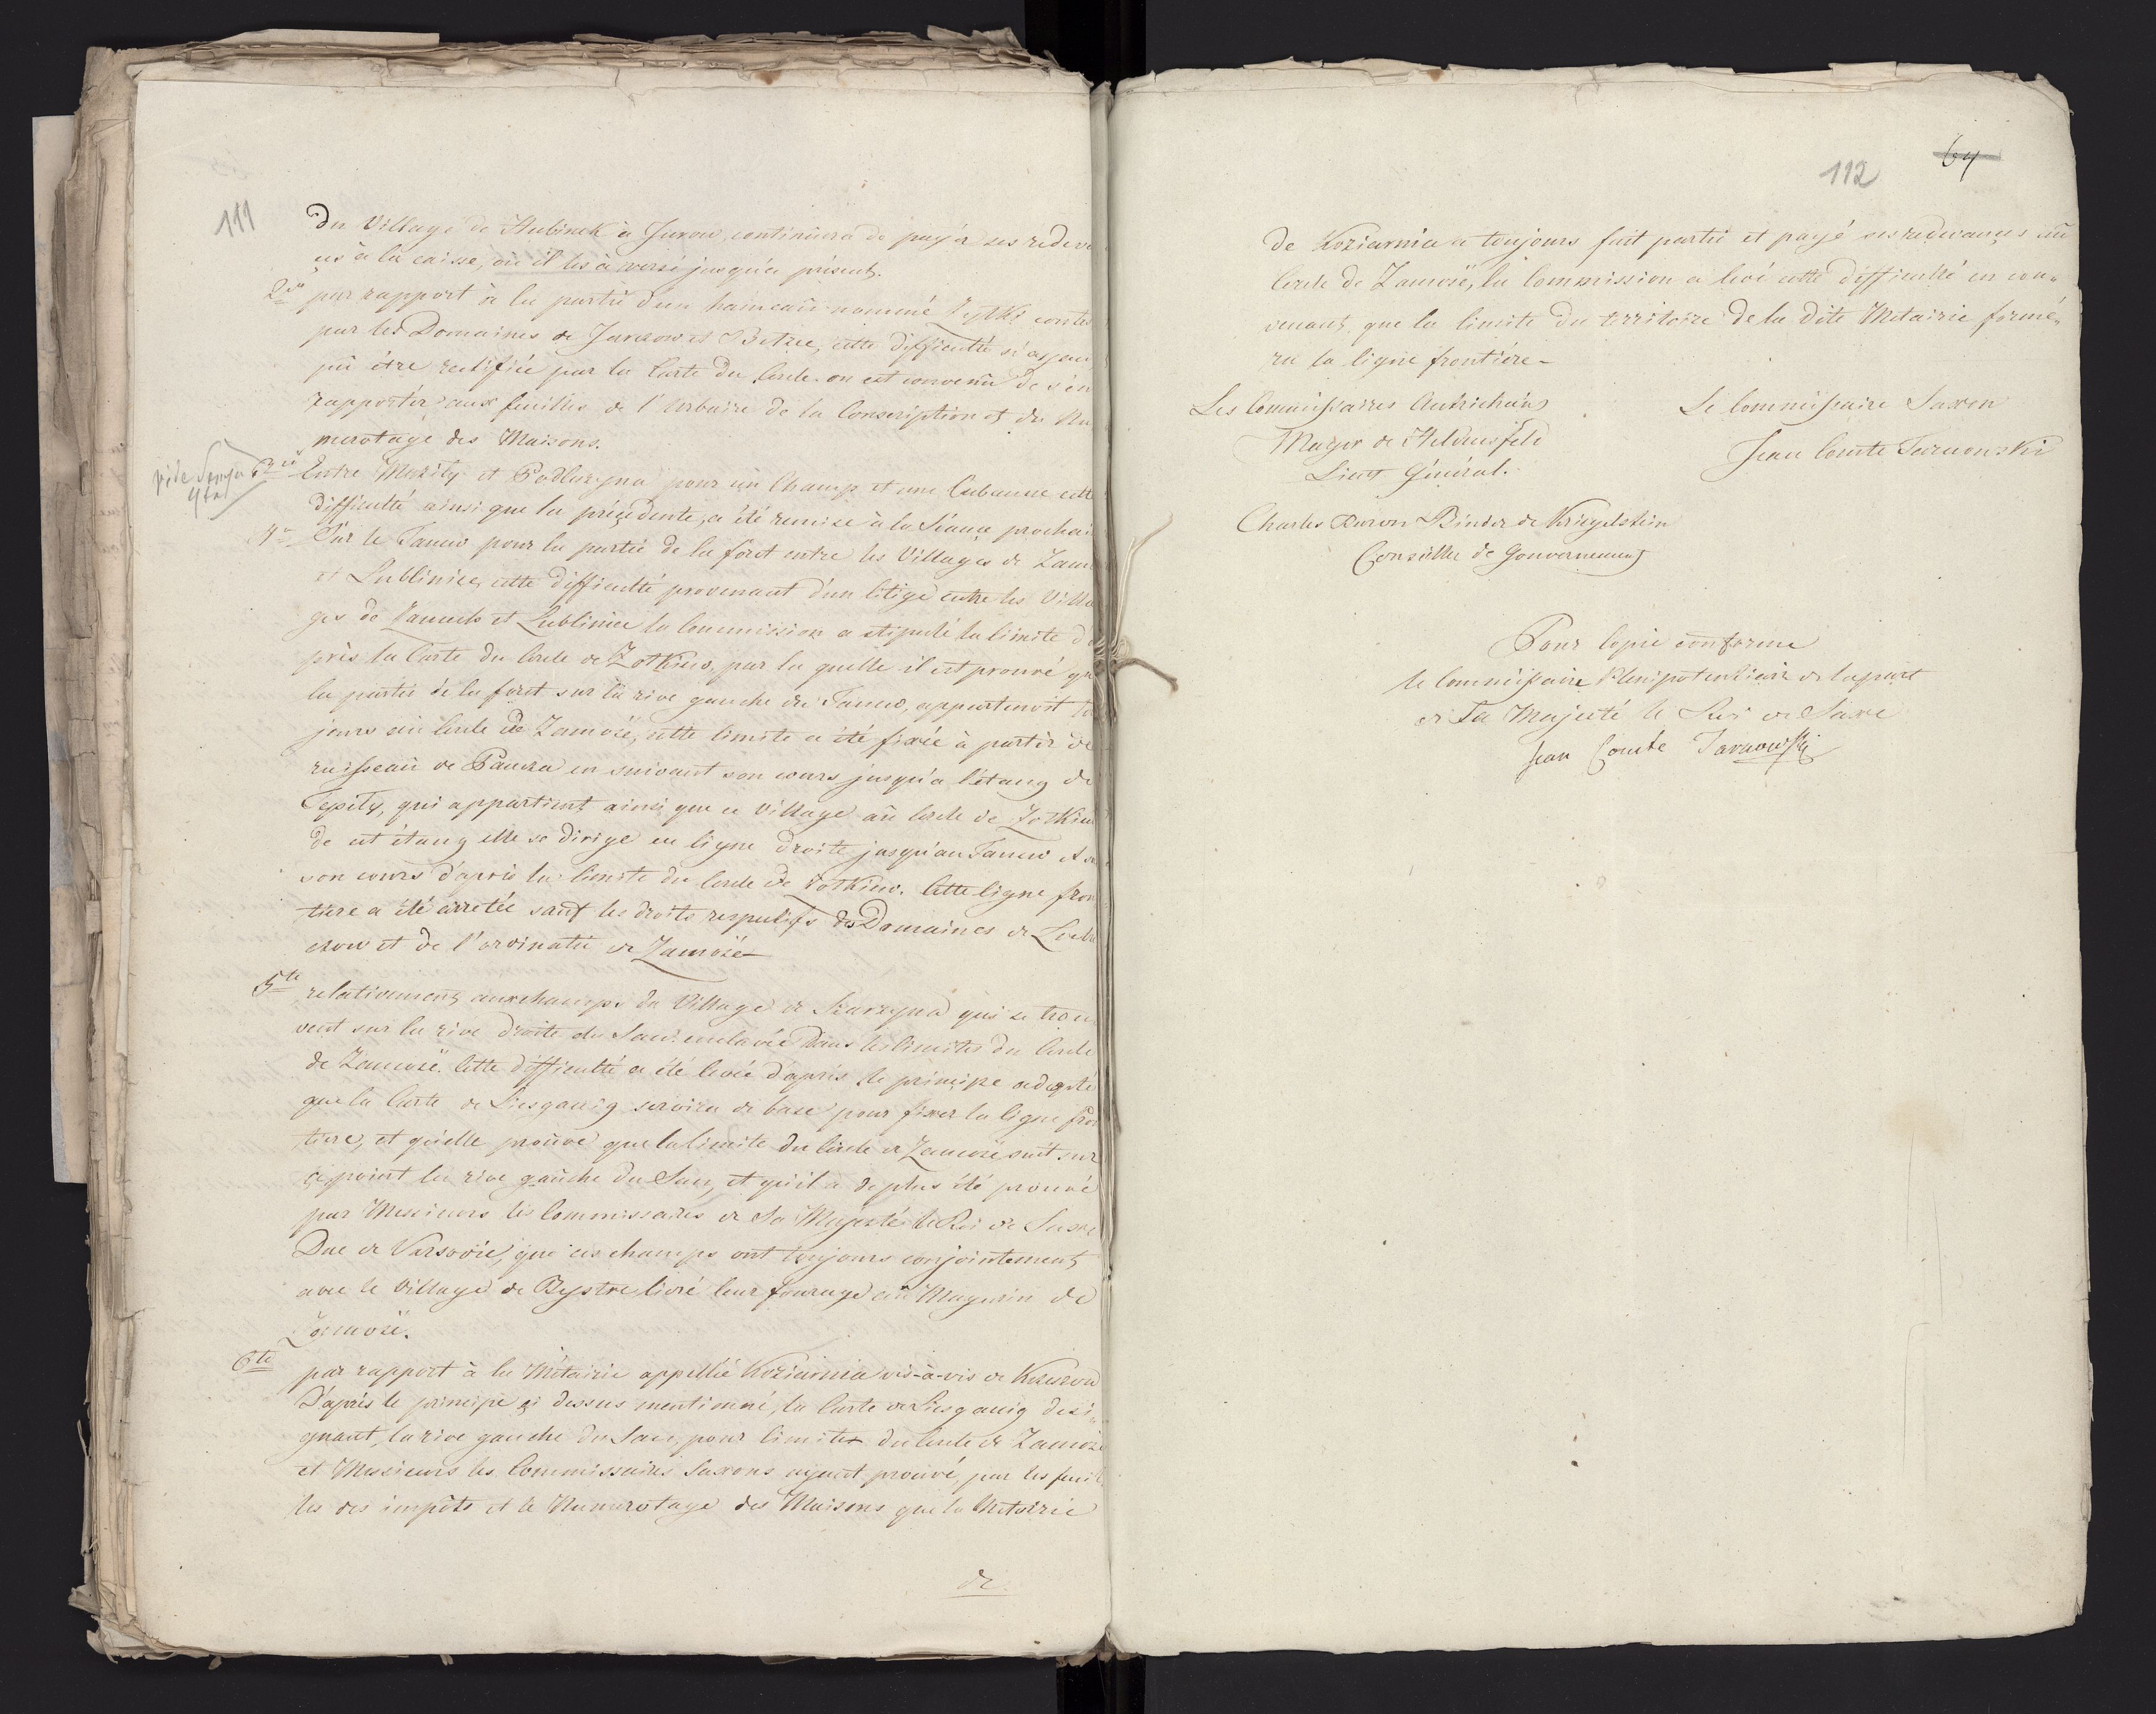 111
du Village de Hubinek à Jurow, continuera de payér ses redeva
ces à la caisse, où il les à versé jusqu'à présent.
2de par rapport à la partie d'un hameau nommé Zytki contes
par les Domaines de Jarczow et Betzec, cette difficulté n'ayant
pû être rectifiée par la Carte du Cercle. on est convenû de s'en
rapportér aux feuilles de l'Urbaire de la Conscription et du Nu
merotage des Maisons.
vide Semper
4tal
3me Entre Mosily et Podlwzyna pour un Champ et une Cabanne cette
difficulté ainsi que la précedente, a été remise à la Séance prochai
4me Sur le Tanew pour la partie de la forêt entre les Villages de Zam
et Lubliniec, cette difficulté provenant d'un litige entre les Villa
ges de Zamech et Lubliniec la Commission a stipulé la limite d'a
près la Carte du Cercle de Zolkiew, par la quelle il est prouvé que
la partie de la forêt sur la rive gauche du Tanew, appartenoit tou
jours au Cercle de Zamosc, cette limite a été fixée à partir du
ruisseau de Paucza en suivant son cours jusqu'a l'étang de
Cepily, qui appartient ainsi que ce Village au Cercle de Zolkiew
de cet étang elle se dirige en ligne droite jusqu'au Tanew et
son cours d'après la limite du Cercle de Zolkiew. Cette ligne fron
tière a été arretée sauf les droits respectifs des Domaines de Luba
czow et de l'ordinatie de Zamosc
5te relativement aux champs du Village de Skarzyna qui se trou
vent sur la rive droite du San enclavée dans les limites du Cercle
de Zamosc. Cette difficulté a été levée d'après le principe adopté
que la Carte de Liesganig servira de base pour fixer la ligne fron
tiere, et qu'elle prouve que la limite du Cercle de Zamosc suit sur
ce point la rive gauche du San, et qu'il a de plus été prouvé
par Messieurs les Commissaires de Sa Majesté le Roi de Saxe
Duc de Varsovie, que ces champs ont toujours conjointement
avec le Village de Bystre livré leur fourage au Magasin de
Zamosc.
6te par rapport à la Métairie appellée Koziarnia vis-à-vis de Krzeszow
D'après le principe ci dessus mentionné, la Carte de Liesganig desi
gnant, la rive gauche du San, pour limites du Cercle de Zamosc
et Messieurs les Commissaires Saxons ayant prouvé par les feuil
les des impôts et le Numerotage des Maisons que la Metairie
de
112
64
de Koziarnia a toujours fait partie et payé ses redevances au
Cercle de Zamosc, la Commission a levé cette difficulté en con„
venant, que la limite du territoire de la dite Metairie forme„
ra la ligne frontiére
Les Commissaires Autrichiens
Le Commissaire Saxon
Mayer de Heldensfeld
Lieut Général.
Jean Comte Tarnowski
Charles Baron Binder de Kriegelstein
Conseiller de Gouvernement
Pour Copie conforme
le Commissaire Plenipotentiaire de la part
de Sa Majesté le Roi de Saxe
Jean Comte Tarnowski